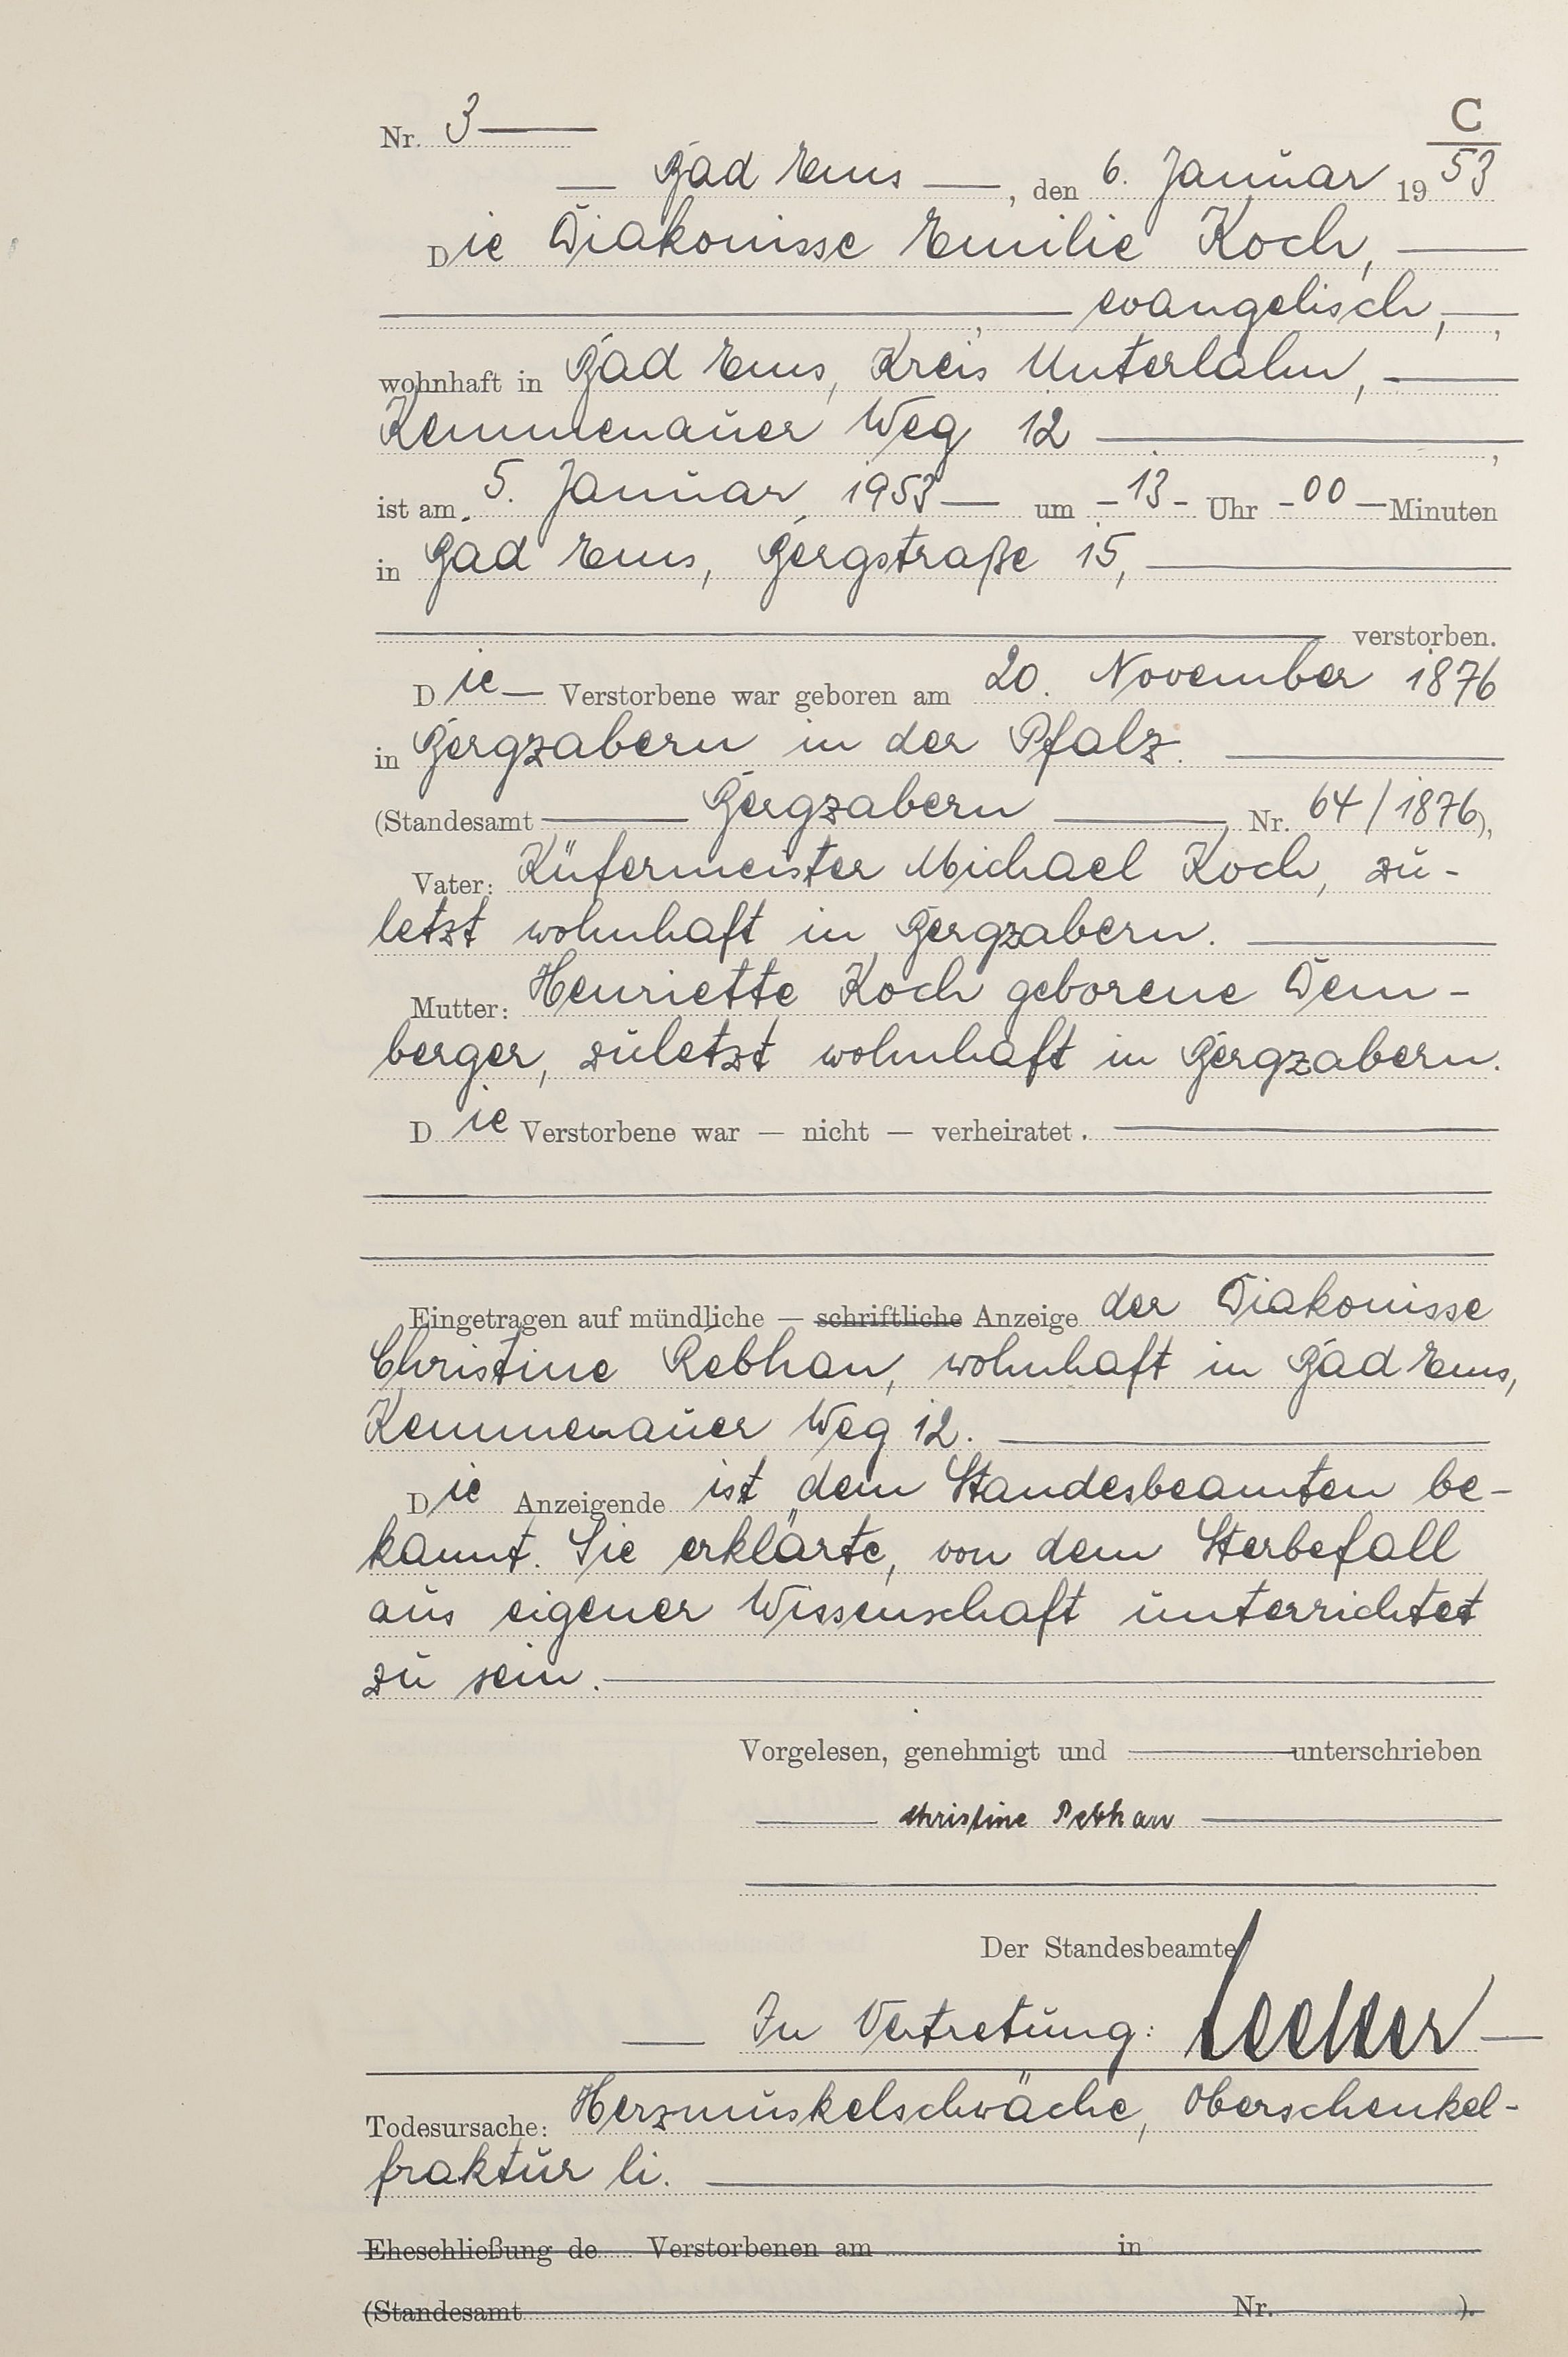 C
Nr. 3
Bad Ems, den 6. Januar 1953
Die Diakonisse Emilie Koch,
evangelisch,
wohnhaft in Bad Ems, Kreis Unterlahn,
Kemmenauer Weg 12
ist am 5. Januar 1953 um -13- Uhr -00- Minuten
in Bad Ems, Bergstraße 15,
verstorben.
Die Verstorbene war geboren am 20. November 1876
in Bergzabern in der Pfalz.
(Standesamt Bergzabern Nr. 64/1876),
Vater: Küfermeister Michael Koch, zu-
letzt wohnhaft in Bergzabern.
Mutter: Henriette Koch geborene Dem-
berger, zuletzt wohnhaft in Bergzabern.
Die Verstorbene war — nicht — verheiratet.
Eingetragen auf mündliche — schriftliche Anzeige der Diakonisse
Christine Rebhan, wohnhaft in Bad Ems,
Kemmenauer Weg 12.
Die Anzeigende ist dem Standesbeamten be-
kannt. Sie erklärte, von dem Sterbefall
aus eigener Wissenschaft unterrichtet
zu sein.
Vorgelesen, genehmigt und unterschrieben
Christine Rebhan
Der Standesbeamte
In Vertretung:
Todesursache: Herzmuskelschwäche, Oberschenkel-
fraktur li.
Eheschließung de Verstorbenen am in
(Standesamt Nr. ).